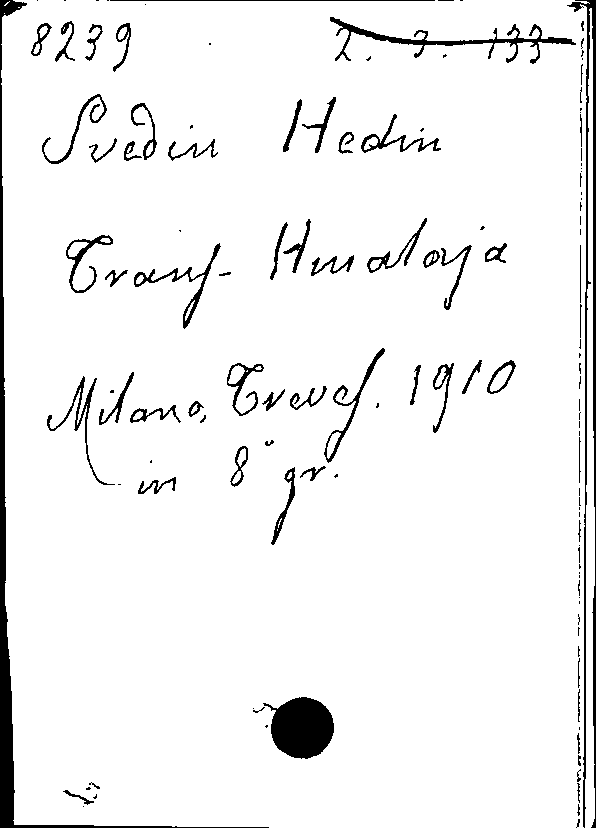 8239 2. 3. 133
Svedin Hedin
Trans- Himalaja
Milano, Treves. 1910
in 8° gr.